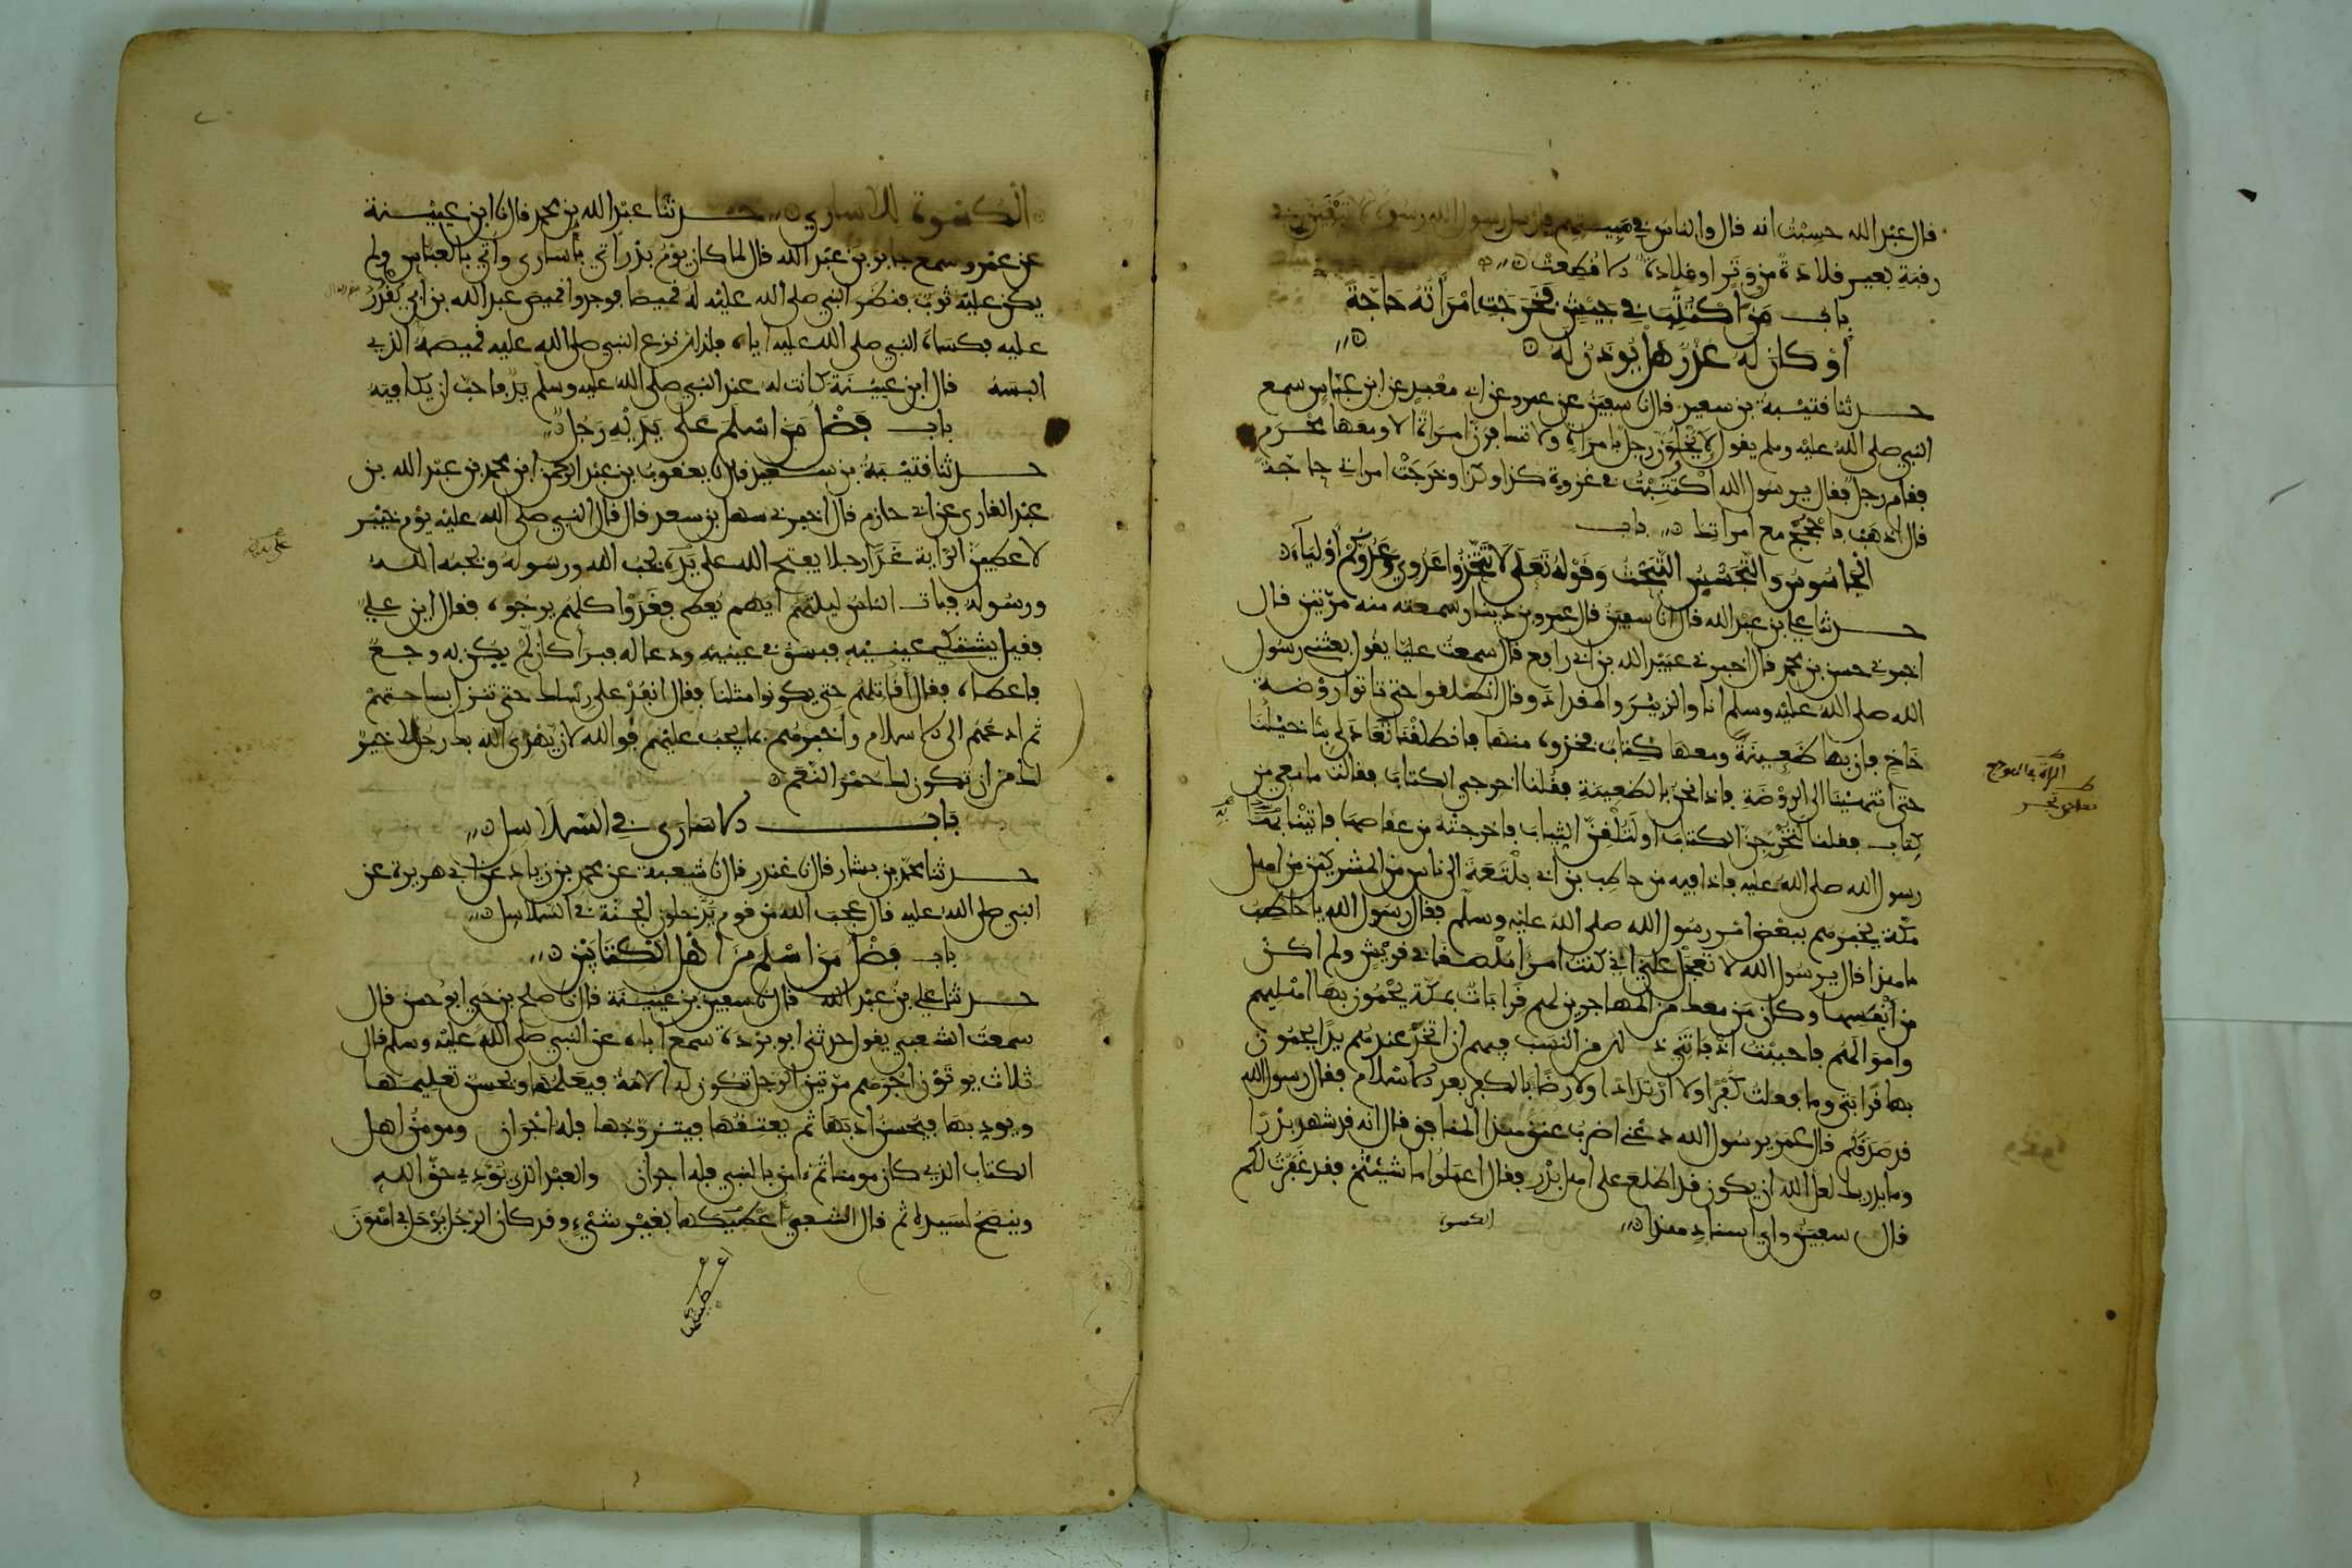 قال عبد الله حسبت انه قال والناس في مبيتهم فارسل رسول الله رسولا لا تبقين في
رقبة بعير قلادة من وتر او قلادة الا قطعت
باب من اكتتب في جيش فخرجت امراته حاجة
او كان له عذر هل يوذن له
حدثنا قتيبة بن سعيد قال نا سفين عن عمرو عن ابي معبد عن ابن عباس سمع
النبي صلى الله عليه وسلم يقول لا يخلون رجل بامراة ولا تسافرن امراة الا ومعها محرم
فقام رجل فقال يرسول الله اكتتبت في غزوة كذا وكذا وخرجت امراتي حاجة
قال اذهب فاحجج مع امراتك باب
الجاسوس والتجسس التبحث وقوله تعلى لا تتخذوا عدوي وعدوكم اولياء
حدثنا علي بن عبد الله قال نا سفين قال عمرو بن دينار سمعته منه مرتين قال
اخبرني حسن بن محمد قال اخبرني عبيد الله بن ابي رافع قال سمعت عليا يقول بعثني رسول
الله صلى الله عليه وسلم انا والزبير والمقداد وقال انطلقوا حتى تاتوا روضة
خاخ فان بها ظعينة ومعها كتاب فخذوه منها فانطلقنا تعادى بنا خيلنا
حتى انتهينا الى الروضة فاذا نحن بالظعينة فقلنا اخرجي الكتاب فقالت ما معي من
كتاب فقلنا لتخرجن الكتاب او لتلقن الثياب فاخرجته من عقاصها فاتينا به
رسول الله صلى الله عليه فاذا فيه من حاطب بن ابي بلتعة الى ناس من المشركين من اهل
مكة يخبرهم ببعض امر رسول الله صلى الله عليه وسلم فقال رسول الله يا حاطب
ما هذا قال يرسول الله لا تعجل علي اني كنت امرا ملصقا في قريش ولم اكن
من انفسها وكان من معك من المهاجرين لهم قرابات بمكة يحمون بها اهليهم
واموالهم فاحببت اذ فاتني ذلك من النسب فيهم ان اتخذ عندهم يدا يحمون
بها قرابتي وما فعلت كفرا ولا ارتدادا ولا رضا بالكفر بعد الاسلام فقال رسول الله
قد صدقكم قال عمر يرسول الله دعني اضرب عنق هذا المنافق قال انه قد شهد بدرا
وما يدريك لعل الله ان يكون قد اطلع على اهل بدر فقال اعملوا ما شئتم فقد غفرت لكم
قال سفين واي اسناد هذا
الكسوة
المراة في الهودج
الكسوة للاسارى حدثنا عبد الله بن محمد قال نا ابن عيينة
عن عمرو سمع جابر بن عبد الله قال لما كان يوم بدر اتي باسارى واتي بالعباس ولم
يكن عليه ثوب فنظر النبي صلى الله عليه له قميصا فوجدوا قميص عبد الله بن ابي يقدر
عليه فكساه النبي صلى الله عليه اياه فلذلك نزع النبي صلى الله عليه قميصه الذي
البسه قال ابن عيينة كانت له عند النبي صلى الله عليه وسلم يد فاحب ان يكافيه
باب فضل من اسلم على يديه رجل
حدثنا قتيبة بن سعيد قال نا يعقوب بن عبد الرحمن ابن محمد بن عبد الله بن
عبد القاري عن ابي حازم قال اخبرني سهل بن سعد قال قال النبي صلى الله عليه يوم خيبر
لاعطين الراية غدا رجلا يفتح الله على يديه يحب الله ورسوله ويحبه الله
ورسوله فبات الناس ليلتهم ايهم يعطى فغدوا كلهم يرجوه فقال اين علي
فقيل يشتكي عينيه فبصق في عينيه ودعا له فبرا كان لم يكن به وجع
فاعطاه فقال اقاتلهم حتى يكونوا مثلنا فقال انفذ على رسلك حتى تنزل بساحتهم
ثم ادعهم الى الاسلام واخبرهم بما يجب عليهم فوالله لان يهدي الله بك رجلا خير
لك من ان تكون لك حمر النعم
باب الاسارى في السلاسل
حدثنا محمد بن بشار قال نا غندر قال نا شعبة عن محمد بن زياد عن ابي هريرة عن
النبي صلى الله عليه قال عجب الله من قوم يدخلون الجنة في السلاسل
باب فضل من اسلم من اهل الكتابين
حدثنا علي بن عبد الله قال نا سفين بن عيينة قال نا صلح بن حي ابو حسن قال
سمعت الشعبي يقول حدثني ابو بردة سمع اباه عن النبي صلى الله عليه وسلم قال
ثلاث يوتون اجرهم مرتين الرجل تكون له الامة فيعلمها ويحسن تعليمها
ويودبها فيحسن ادبها ثم يعتقها فيتزوجها فله اجران ومومن اهل
الكتاب الذي كان مومنا ثم امن بالنبي فله اجران والعبد الذي يودي حق الله
وينصح لسيده ثم قال الشعبي اعطيتكها بغير شيء وقد كان الرجل يرحل في اهون